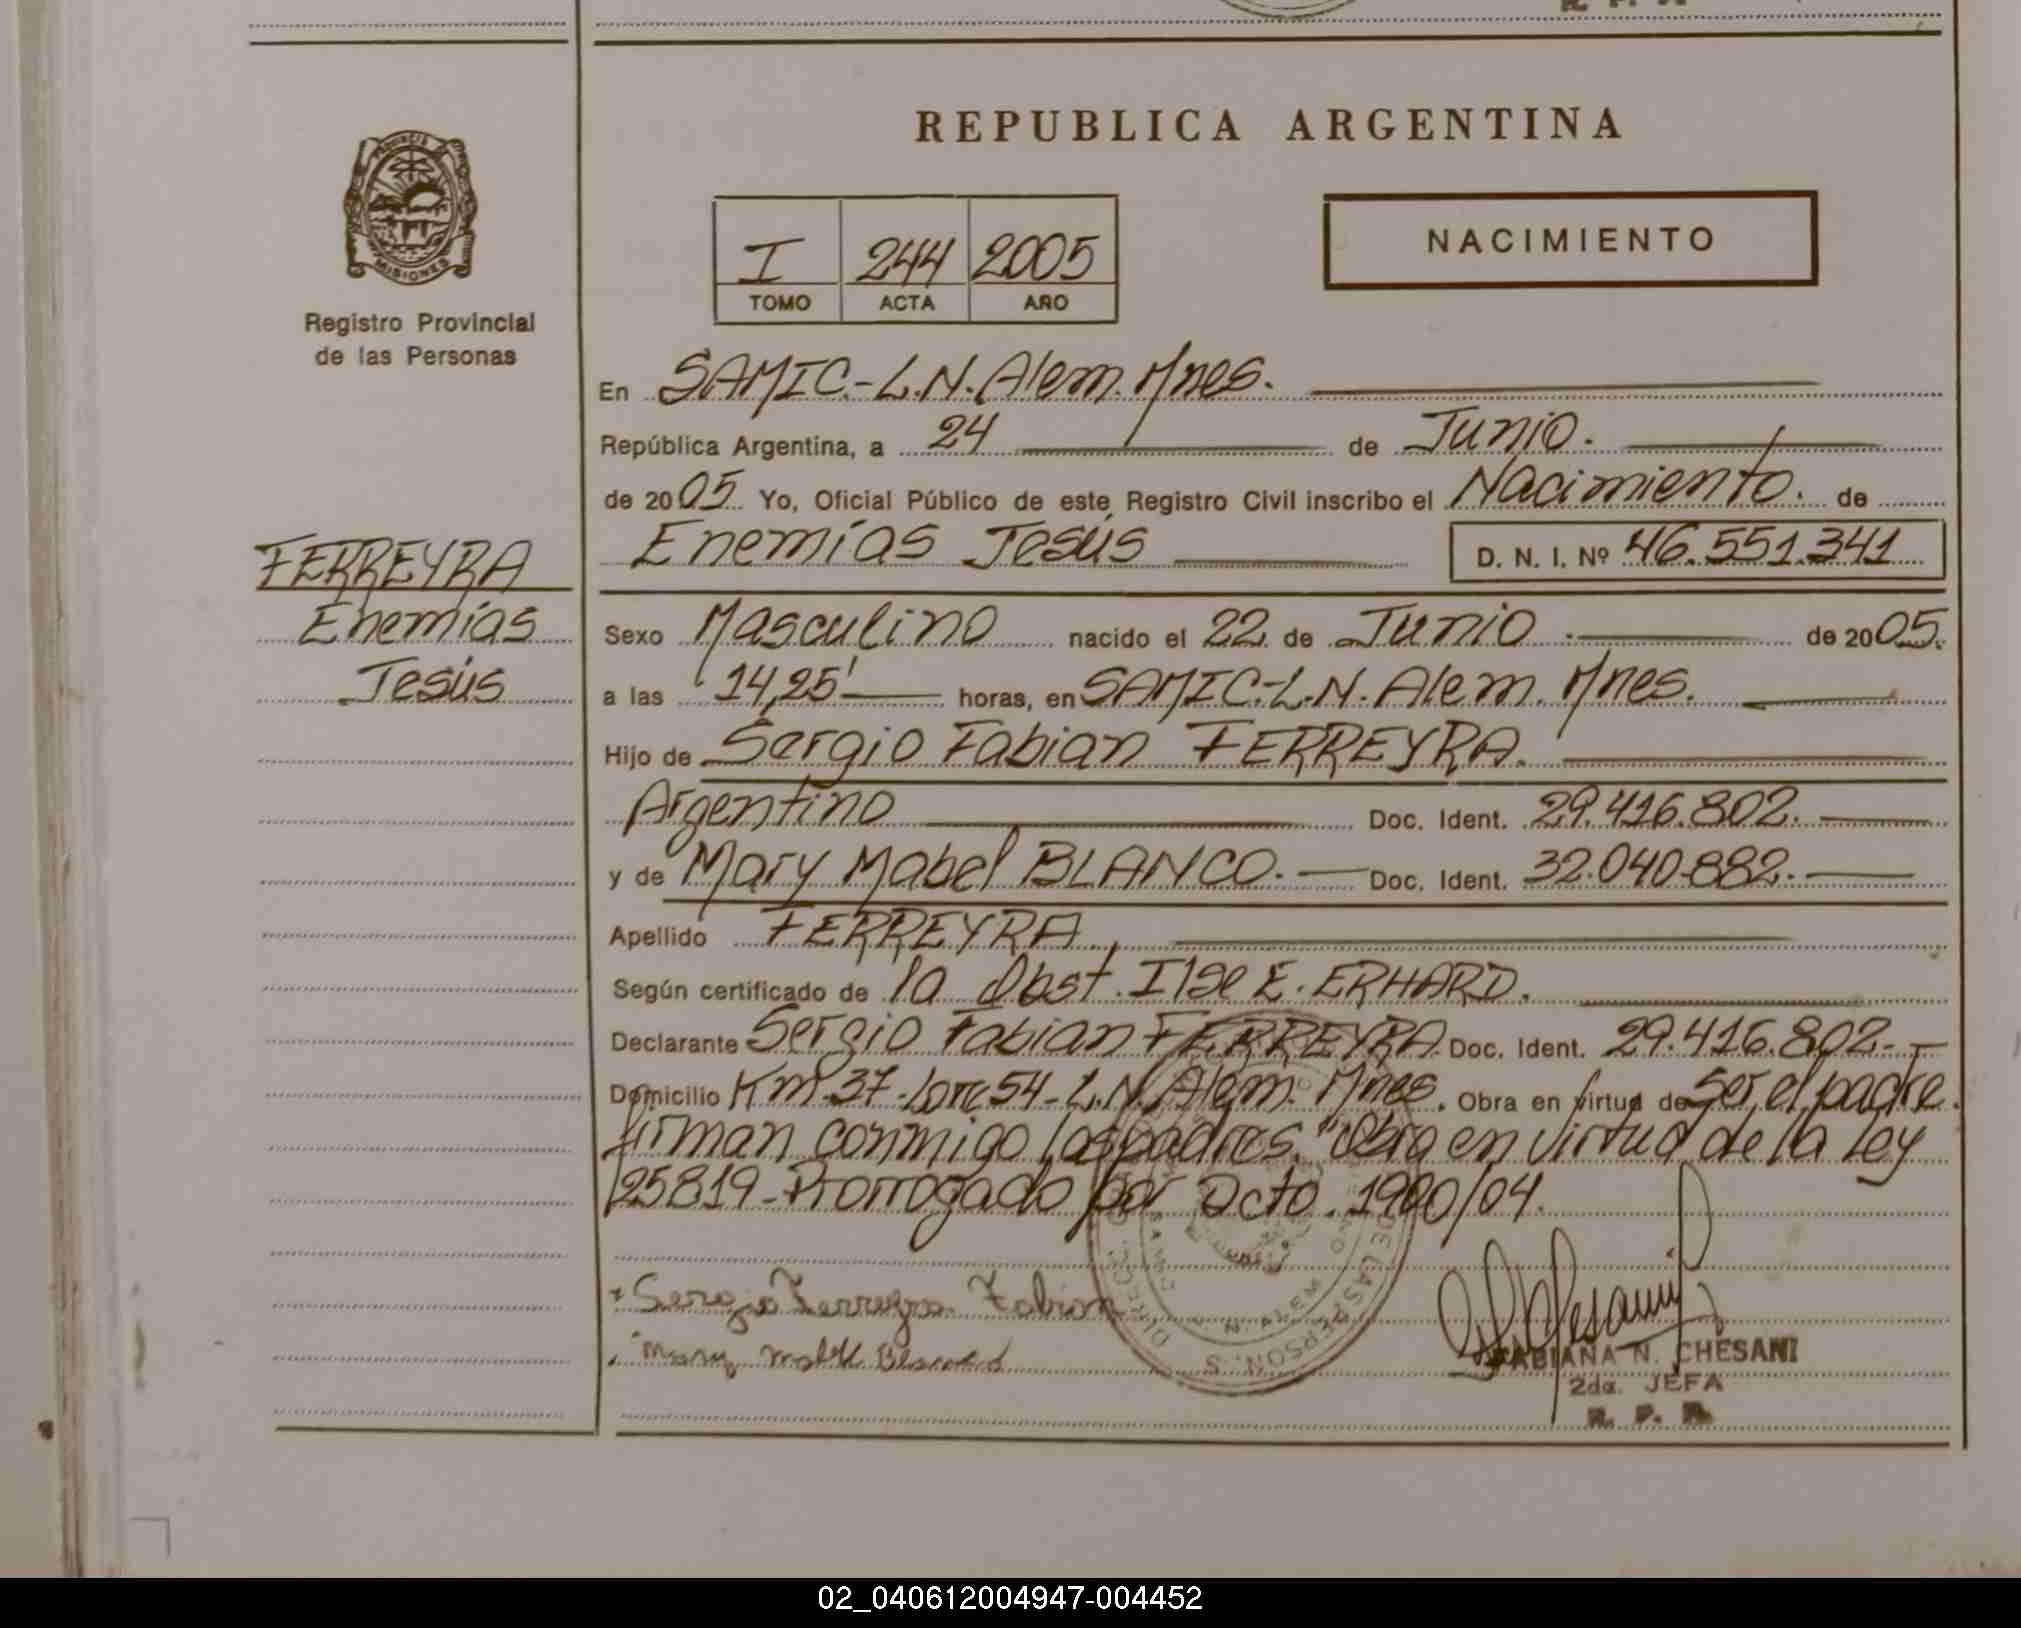 REPUBLICA ARGENTINA
PROVINCIA
MISIONES
Registro Provincial
de las Personas
I 244 2005
TOMO ACTA AÑO
NACIMIENTO
En SAMIC.-L.N.Alem.Mnes.
República Argentina, a 24 de Junio.
de 2005 Yo, Oficial Público de este Registro Civil inscribo el Nacimiento. de
Enemías Jesús D. N. I. Nº 46.551.341
FERREYRA
Enemías
Jesús
Sexo Masculino nacido el 22 de Junio de 2005.
a las 14,25' horas, en SAMIC-L.N.Alem.Mnes.
Hijo de Sergio Fabian FERREYRA.
Argentino Doc. Ident. 29.416.802.
y de Mary Mabel BLANCO. Doc. Ident. 32.040.882.
Apellido FERREYRA.
Según certificado de la Obst. Ilse E. ERHARD.
Declarante Sergio Fabian FERREYRA. Doc. Ident. 29.416.802.
Domicilio Km.37-Lote 54-L.N.Alem.Mnes. Obra en virtud de Ser el padre.
firman conmigo los padres. "Obra en virtud de la Ley
25819-Prorrogado por Dcto. 1900/04.
Sergio Ferreyra Fabian
Mary Blanco
FABIANA N. CHESANI
2da. JEFA
R. P. P.
02_040612004947-004452